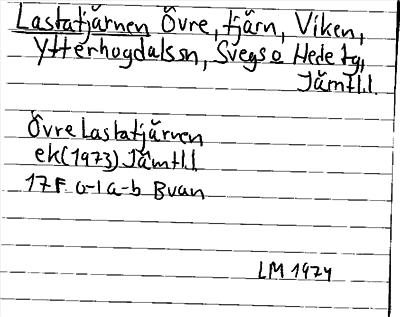 Lastatjärnen Övre, tjärn, Viken,
Ytterhogdalssn, Svegs o Hede tg,
Jämtl.l.
Övre Lastatjärnen
ek(1973) Jämtl.l
17F 0-1 a-b Buan
LM 1974